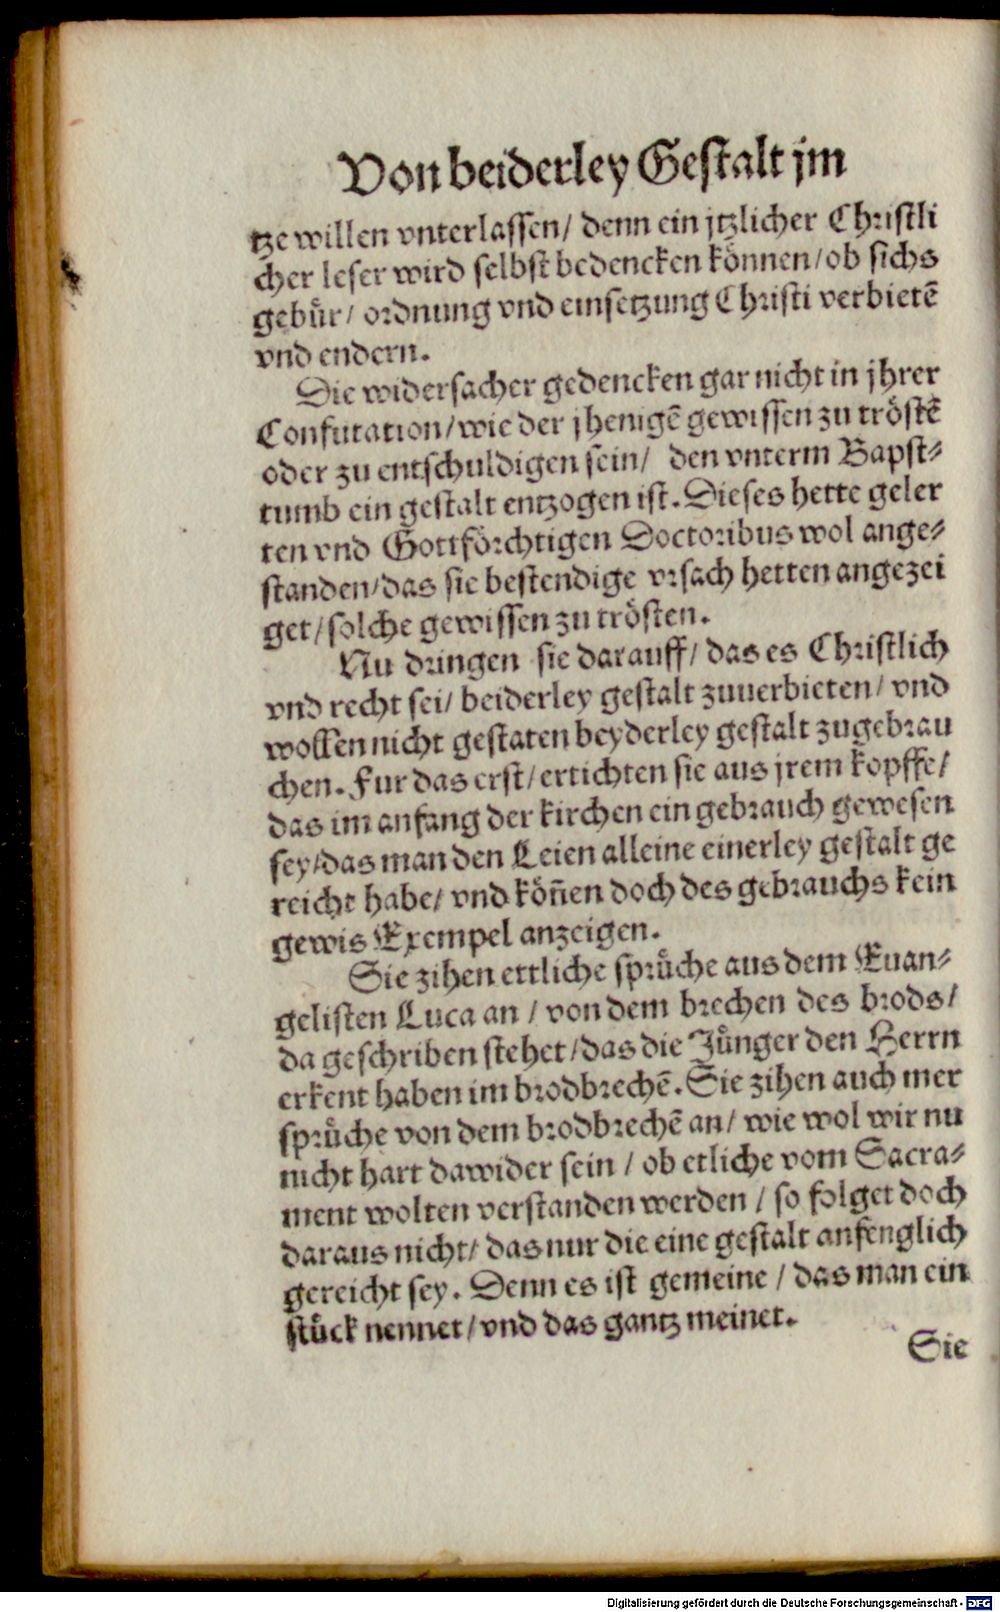 Von beiderley Gestalt jm
tze willen vnterlassen/ denn ein jtzlicher Christli
cher leser wird selbst bedencken können/ ob sichs
gebuͤr/ ordnung vnd einsetzung Christi verbietē
vnd endern.
Die widersacher gedencken gar nicht in jhrer
Confutation/ wie der jhenigē gewissen zu tröstē
oder zu entschuldigen sein/ den vnterm Bapst⸗
tumb ein gestalt entzogen ist. Dieses hette geler
ten vnd Gottförchtigen Doctoribus wol ange⸗
standen/ das sie bestendige vrsach hetten angezei
get/ solche gewissen zu trösten.
Nu dringen sie darauff/ das es Christlich
vnd recht sei/ beiderley gestalt zuuerbieten/ vnd
wollen nicht gestaten beyderley gestalt zugebrau
chen. Fur das erst/ ertichten sie aus jrem kopffe/
das im anfang der kirchen ein gebrauch gewesen
sey/ das man den Leien alleine einerley gestalt ge
reicht habe/ vnd kön̄en doch des gebrauchs kein
gewis Exempel anzeigen.
Sie zihen ettliche spruͤche aus dem Euan⸗
gelisten Luca an / von dem brechen des brods/
da geschriben stehet/ das die Juͤnger den Herrn
erkent haben im brodbrechē. Sie zihen auch mer
spruͤche von dem brodbrechē an/ wie wol wir nu
nicht hart dawider sein / ob etliche vom Sacra⸗
ment wolten verstanden werden / so folget doch
daraus nicht/ das nur die eine gestalt anfenglich
gereicht sey. Denn es ist gemeine / das man ein
stuͤck nennet/ vnd das gantz meinet.
Sie
Digitalisierung gefördert durch die Deutsche Forschungsgemeinschaft - DFG